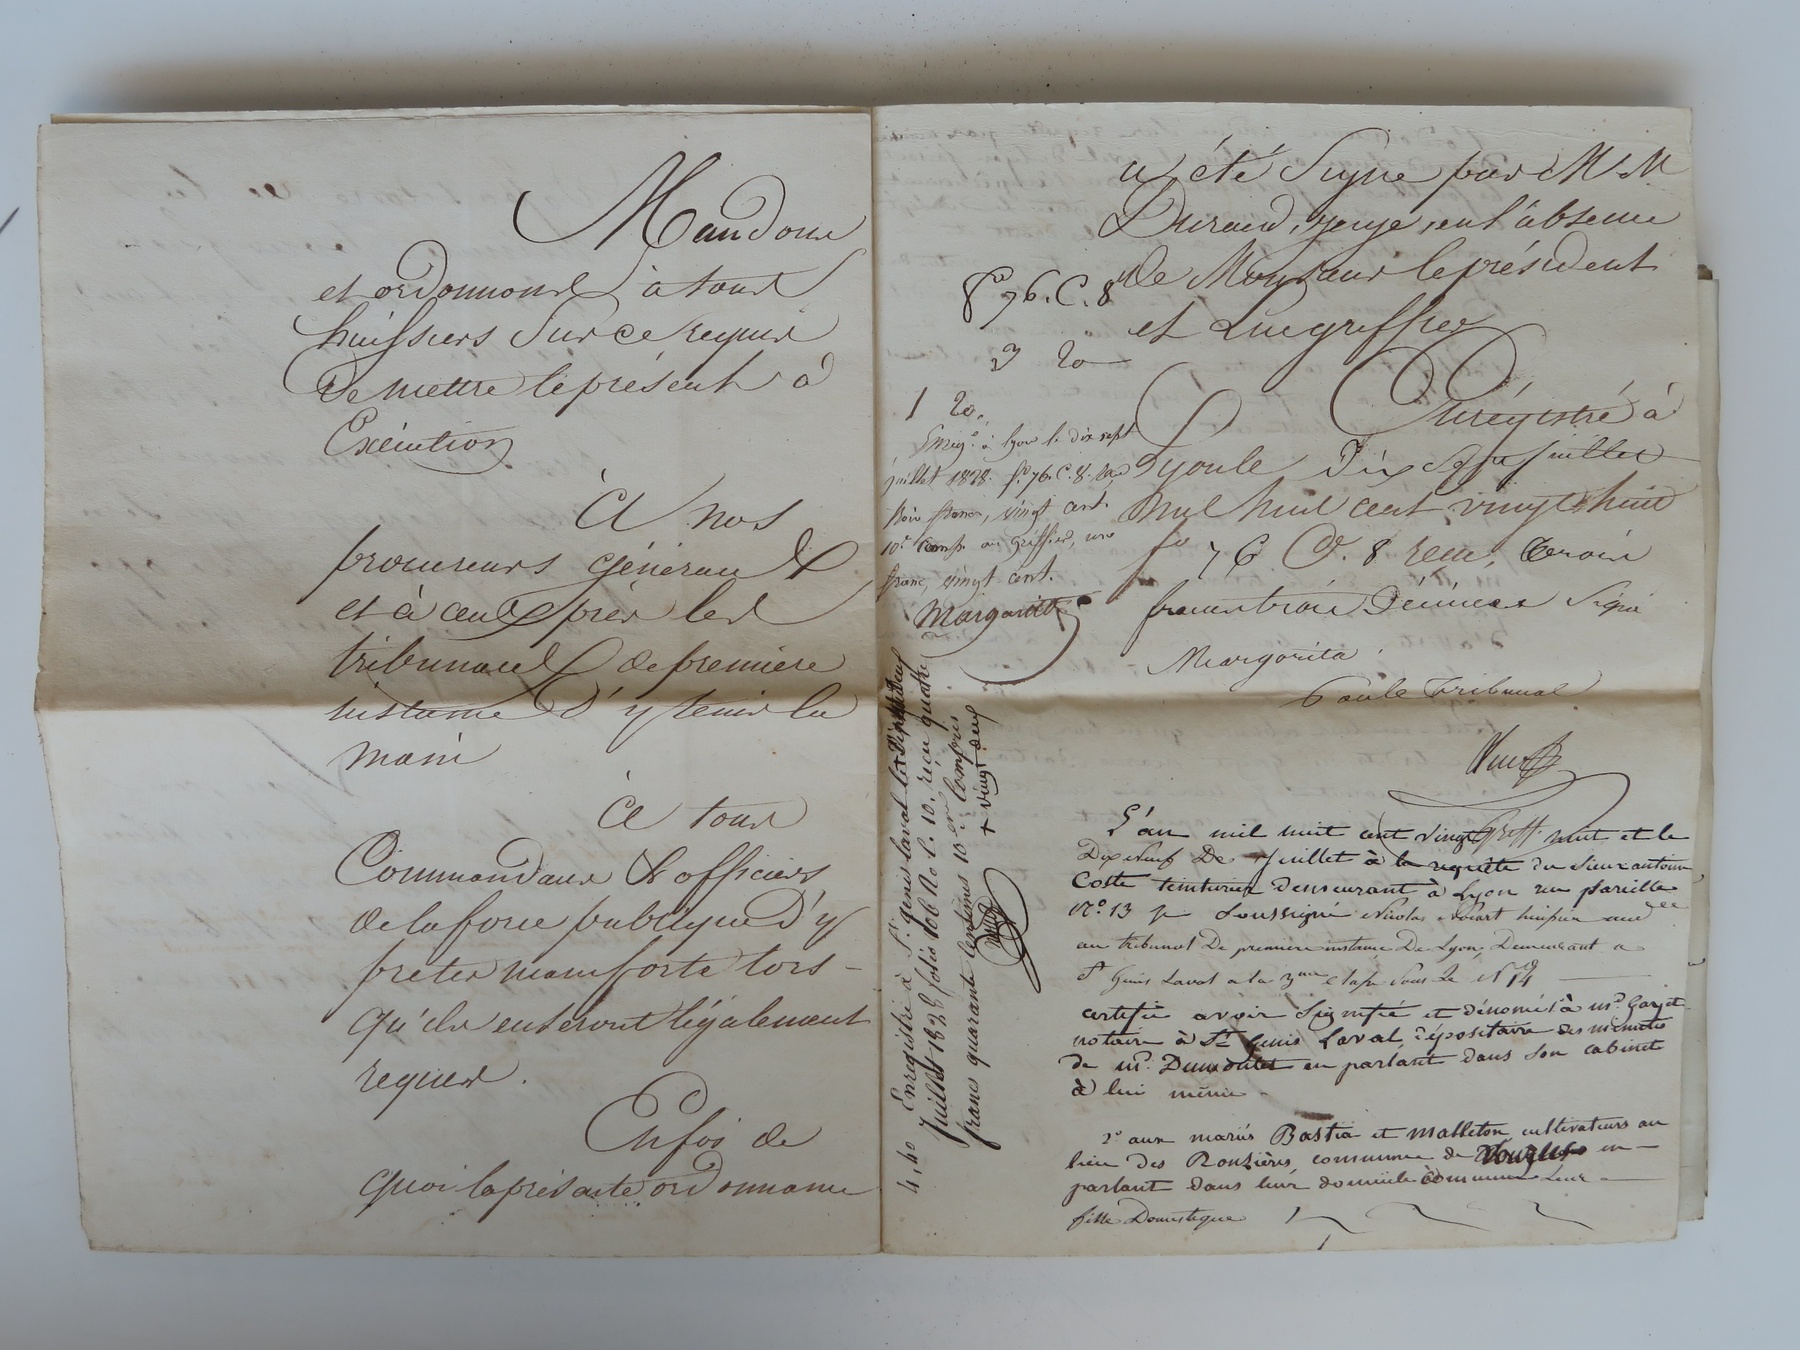 Mandons
et ordonnons à tous
huissiers sur ce requis
de mettre le présent à
Exécution
A nos
procureurs généraux
et à ceux près les
tribunaux de première
instance d'y tenir la
main
A tous
Commandans & officiers
de la force publique d'y
prêter mainforte lors-
qu'ils en seront légalement
requis.
En foi de
quoi la présente ordonnance
a été Signé par M M
Durand, juge, en l'absence
de Monsieur le président
et Luc greffier
Enrégistré à
Lyon le Dix Sept juillet
mil huit cent vingt huit
fo 76 C. 8 recu, trois
francs trois Décimes Signé
Margarita.
Par le Tribunal
Greff.
fo 76. C. 8
3 20
1 20.
Enreg.º à Lyon le dix sept
juillet 1828. fo 76. C. 8. Reçu
trois francs, vingt cent.
10e compris au Greffier, un
franc, vingt cent.
Margarita
4,40 Enregistré à St. genis laval le Dix neuf
Juillet 1828 folio 106 Ro C. 10. reçu quatre
francs quarante Centimes 10e compris
+ vingt deux
L'an mil huit cent vingt huit et le
Dix neuf De Juillet à la requête du Sieur antoine
Coste teinturier demeurant à Lyon rue pareille
No. 13 je Soussigné Nicolas huissier aud.cee
au tribunal De première instance De Lyon, Demeurant a
St Genis Laval a la Sous Le No 14
certifie avoir Signifié et dénoncé 1º à Me.
notaire à St Genis Laval, dépositaire des minutes
de Me. en parlant dans Son cabinet
à lui même
2º aux mariés Bastia et Malleton cultivateurs au
lieu des Ronzières, commune de Vourles en
parlant dans leur domicile commun Leur
fille Domestique